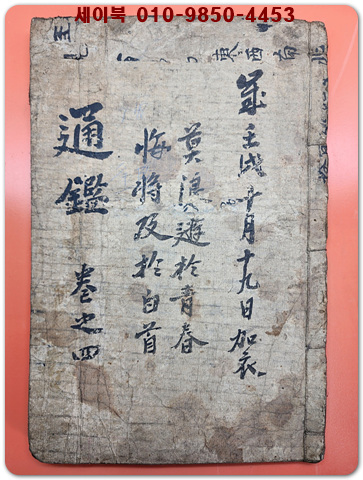 세이북 010-9850-4453
南西東
歲壬戌十月十九日加衣
莫浪遊於靑春
悔將及於白首
通鑑 卷之四